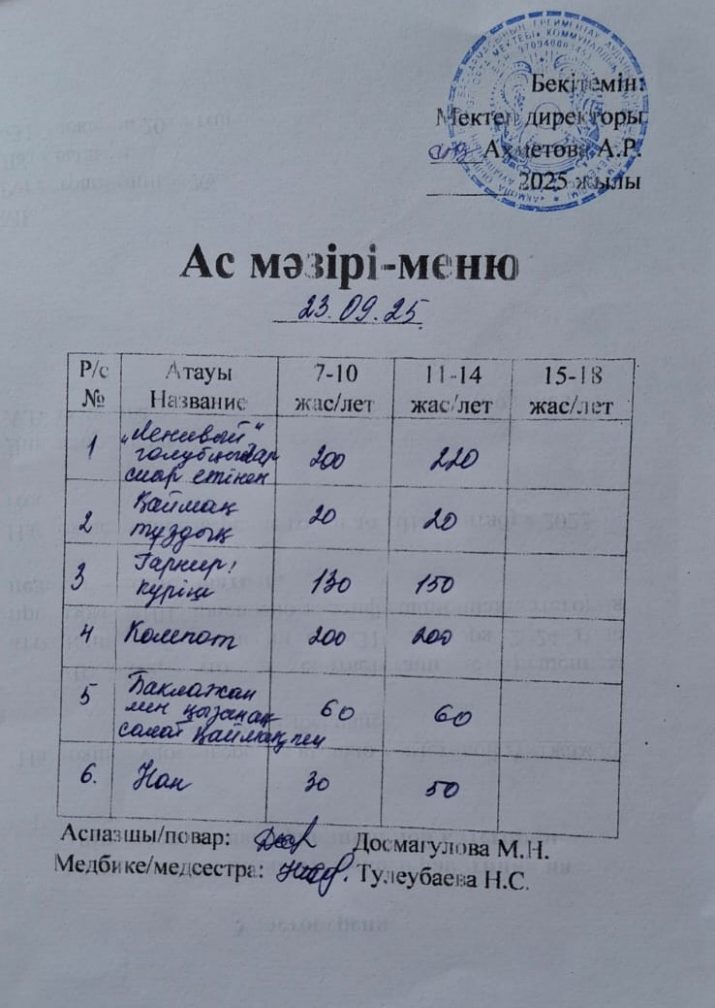 Бекітемін:
Мектеп директоры
Ахметова А.Р.
2025 жылы
Ас мәзірі-меню
23.09.25
Р/с № Атауы Название 7-10 жас/лет 11-14 жас/лет 15-18 жас/лет
1 „Ленивый“ 200 220
голубцылар
сиыр етінен
2 Қаймақ 20 20
тұздық
3 Гарнир: 130 150
күріш
4 Компот 200 200
5 Баклажан 60 60
мен қызанақ
салат қаймақпен
6. Нан 30 50
Аспазшы/повар: Досмагулова М.Н.
Медбике/медсестра: Тулеубаева Н.С.